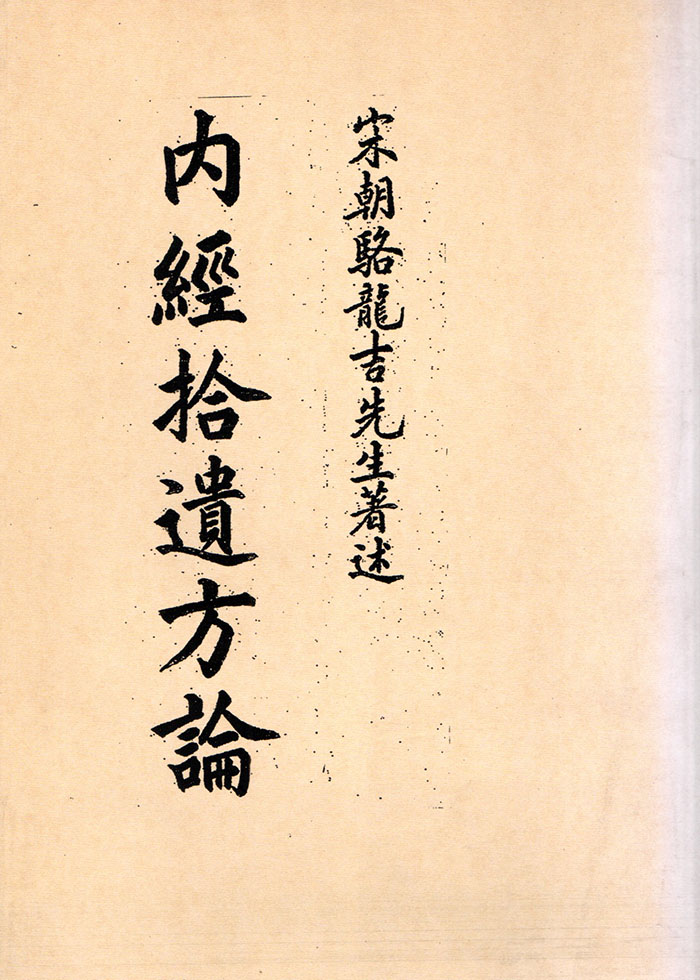 宋朝駱龍吉先生著述
內經拾遺方論